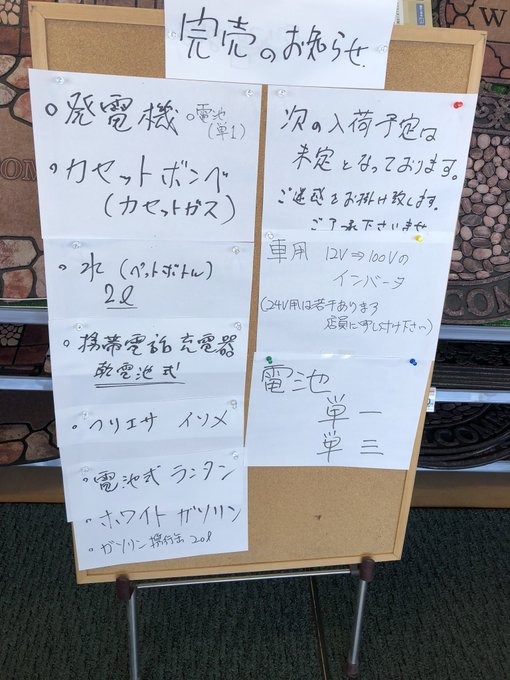 完売のお知らせ
○発電機 ○電池
(単1)
○カセットボンベ
(カセットガス)
○水 (ペットボトル)
2ℓ
○携帯電話充電器
乾電池式
○ツリエサ イソメ
○電池式 ランタン
○ホワイト ガソリン
○ガソリン携行缶 20ℓ
次の入荷予定は
未定となっております。
ご迷惑をお掛け致します。
ご了承下さいませ
車用 12V⇒100Vの
インバータ
(24V用は若干あります
店員に申し付け下さい)
電池
単一
単三